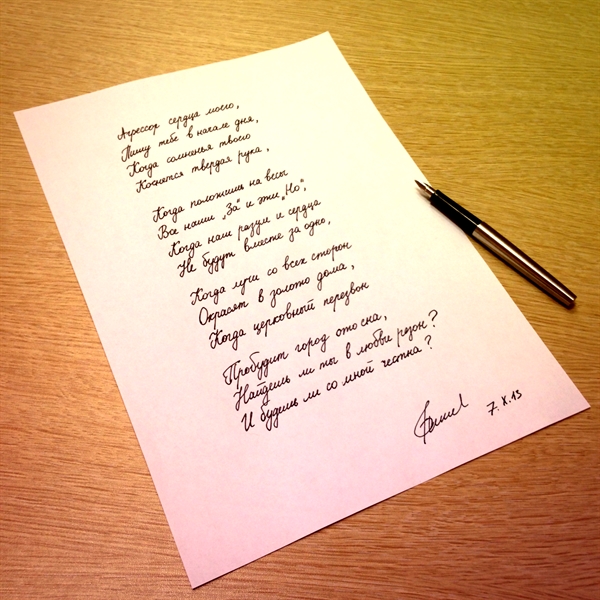 Агрессор сердца моего,
Пишу тебе в начале дня,
Когда сомненья твоего
Коснется твердая рука,
Когда положишь на весы
Все наши „За“ и эти „Но“,
Когда наш разум и сердца
Не будут вместе за одно,
Когда лучи со всех сторон
Окрасят в золото дома,
Когда церковный перезвон
Пробудит город ото сна,
Найдешь ли ты в любви резон?
И будешь ли со мной честна?
7.X.13